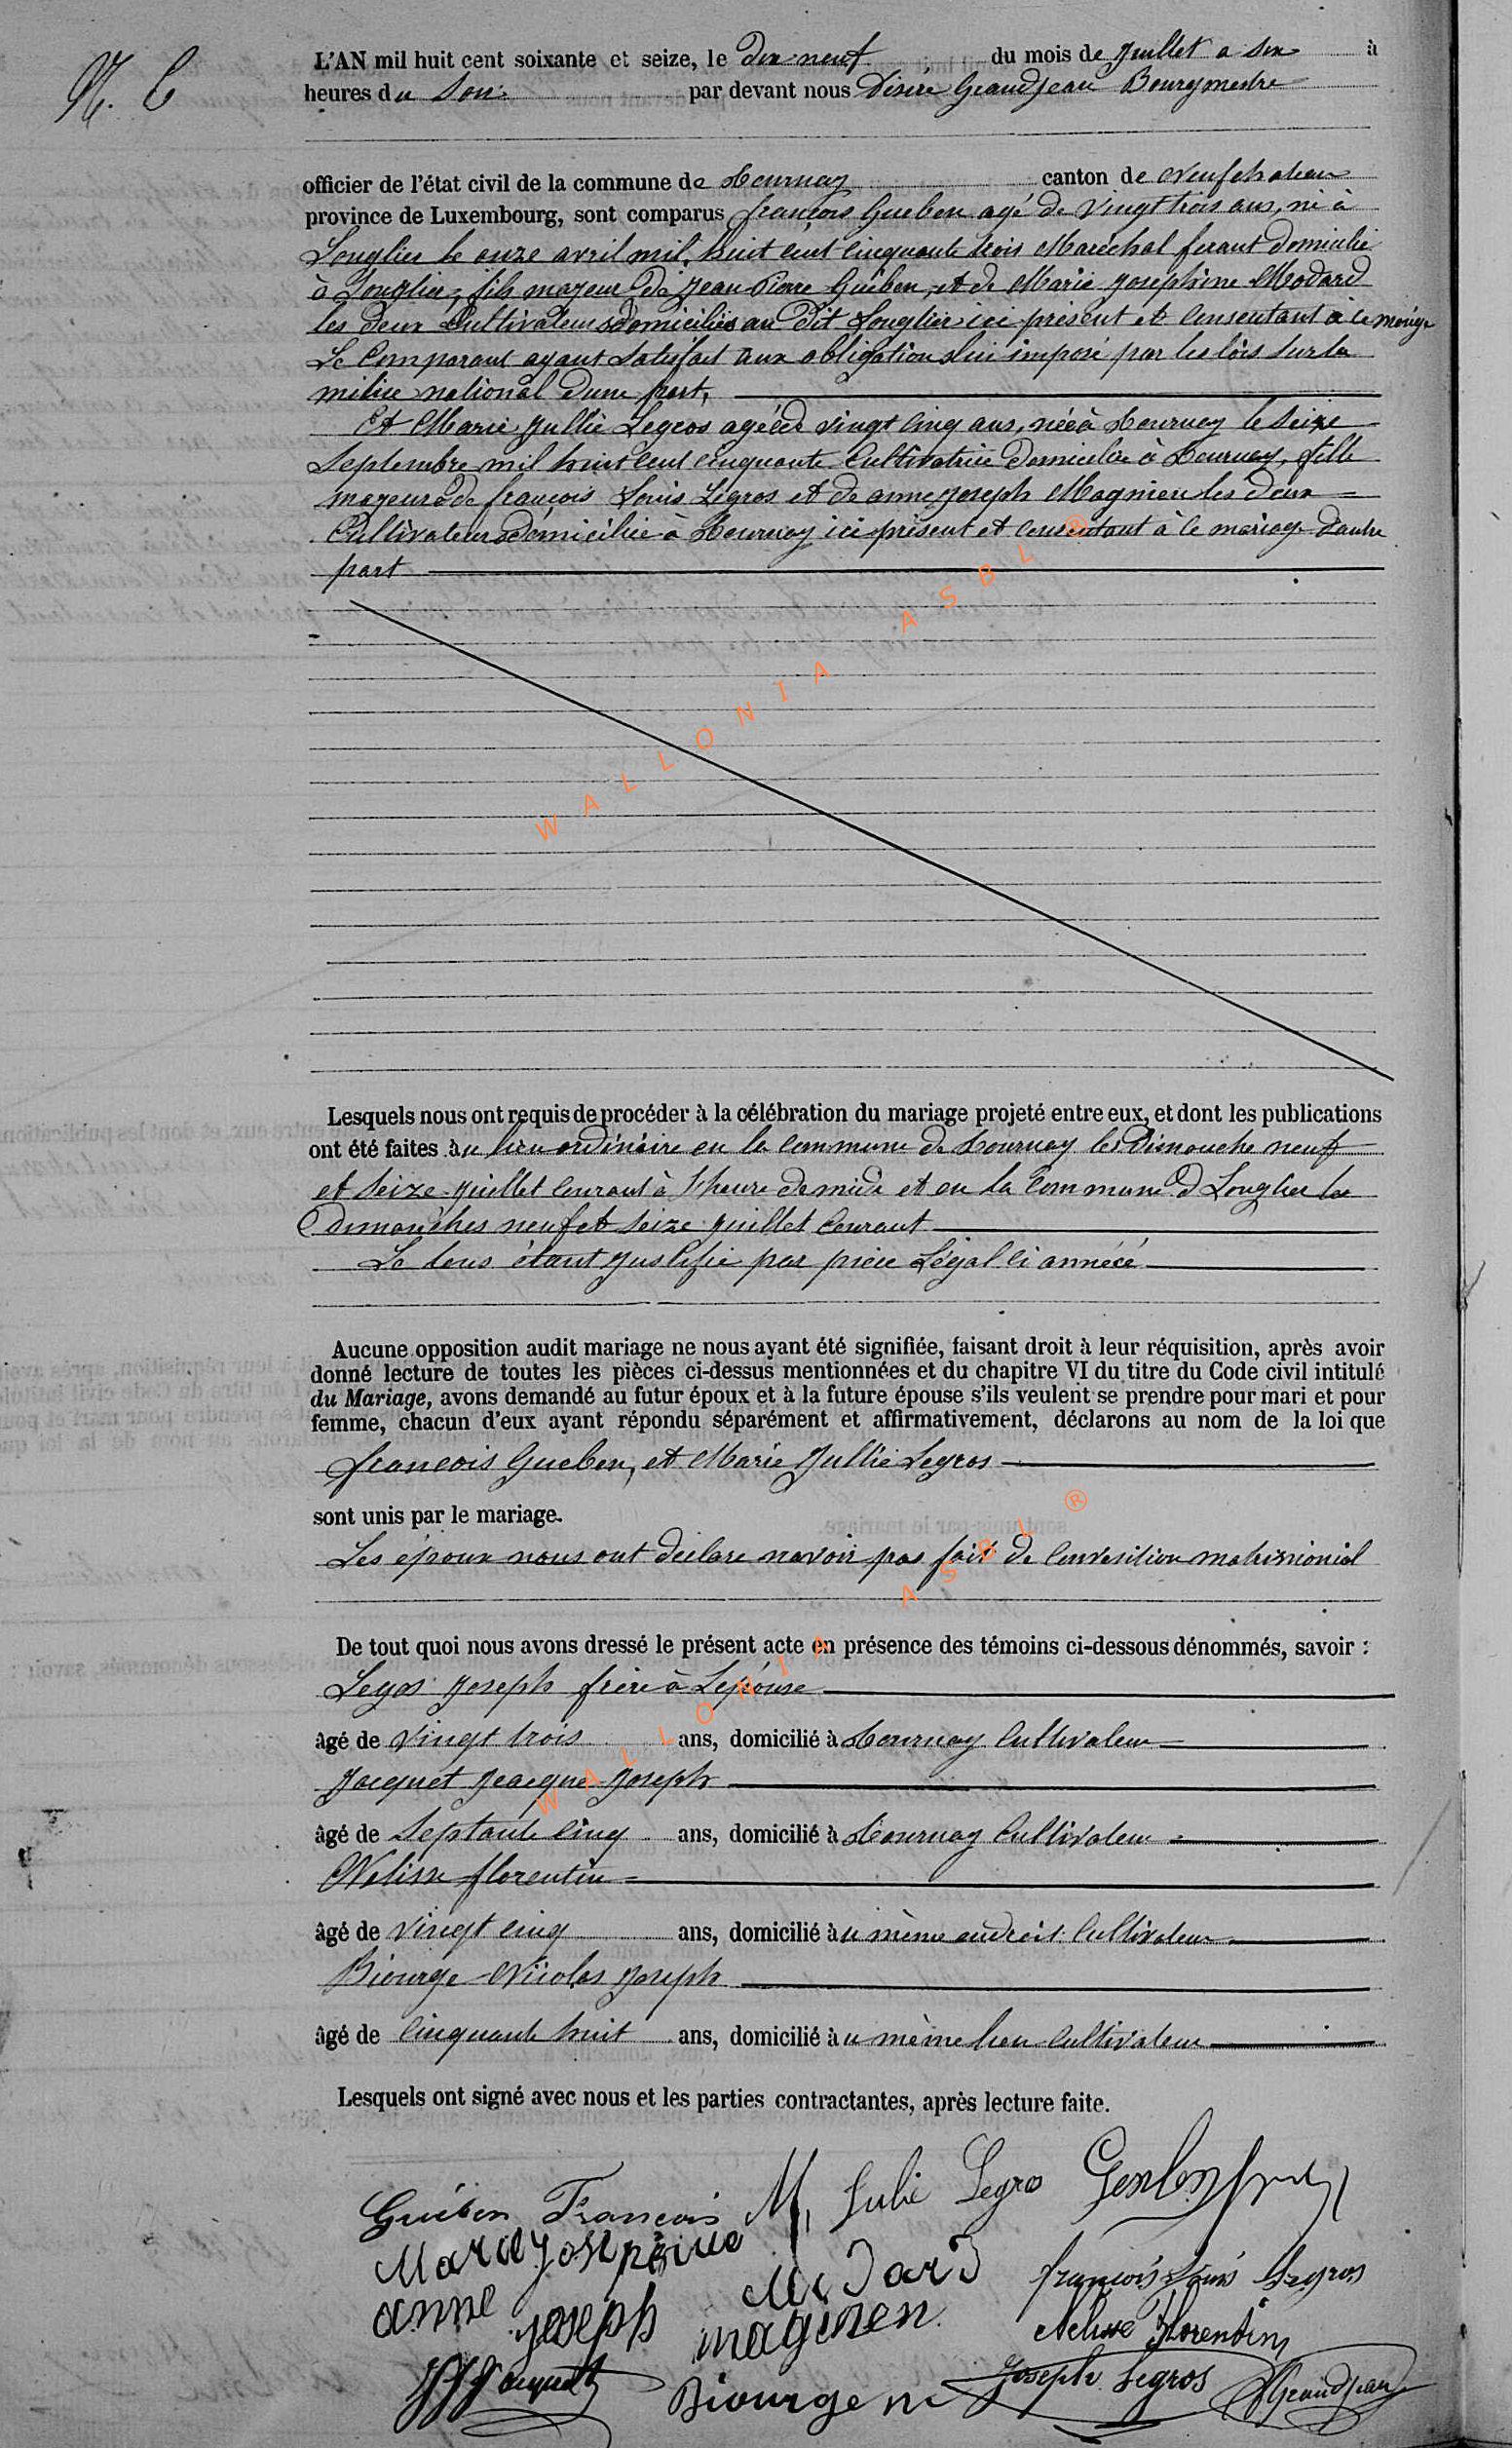 N. 6
L'AN mil huit cent soixante et seize, le dix-neuf du mois de juillet a six à
heures du Soir par devant nous Désiré Grandjean Bourgmestre
officier de l'état civil de la commune de Tournay canton de Neufchateau
province de Luxembourg, sont comparus françois Gueben agé de Vingt trois ans, né à
Longlier le onze avril mil huit cent cinquante trois Maréchal ferant domicilié
à Longlier, fils mageur de Jean Pierre Guëben, et de Marie Josephine Modard
les deux Cultivateurs domiciliés au dit Longlier ici présent et Consentant à ce mariage
Le Comparant ayant Satisfait aux obligations lui imposé par les lois sur la
milice national d'une part,
Et Marie Jullie Legros agée de vingt cinq ans, née à Tournay le Seize
Septembre mil huit cent cinquante Cultivatrice domicilée à Tournay, fille
mageure de françois Louis Legros et de anne joseph Magnien les deux
Cultivateurs domicilié à Tournay ici présent et consentant à ce mariage d'autre
part
Lesquels nous ont requis de procéder à la célébration du mariage projeté entre eux, et dont les publications
ont été faites au lieu ordinaire en la Commune de Tournay les Dimanche neuf
et Seize juillet Courant à l'heure de midi et en la Commune d Longlier les
dimanches neuf et Seize juillet Courant
Le tous étant justifié par pièce Légal ci annéxé
Aucune opposition audit mariage ne nous ayant été signifiée, faisant droit à leur réquisition, après avoir
donné lecture de toutes les pièces ci-dessus mentionnées et du chapitre VI du titre du Code civil intitulé
du Mariage, avons demandé au futur époux et à la future épouse s'ils veulent se prendre pour mari et pour
femme, chacun d'eux ayant répondu séparément et affirmativement, déclarons au nom de la loi que
françois Gueben, et Marie Jullie Legros
sont unis par le mariage.
Les époux nous ont déclare navoir pas fait de Convesition matrimonial
De tout quoi nous avons dressé le présent acte en présence des témoins ci-dessous dénommés, savoir :
Legos Joseph frère à Lepouse
âgé de Vingt trois ans, domicilié à Tournay Cultivateur
Jacquet Jeacque Joseph
âgé de Septante cinq ans, domicilié à Tournay Cultivateur
Nelisse florentin
âgé de Vingt cinq ans, domicilié au même endroit Cultivateur
Biourge Nicolas Joseph
âgé de Cinquante huit ans, domicilié au même lieu Cultivateur
Lesquels ont signé avec nous et les parties contractantes, après lecture faite.
Guében François M, Julie Legro
Marie Josephine Medard françois Louis Legros
anne joseph magenen Nelisse Florentin
JJ Jacquet Biourge n Joseph Legros Grandjean
WALLONIA ASBL ®
WALLONIA ASBL ®